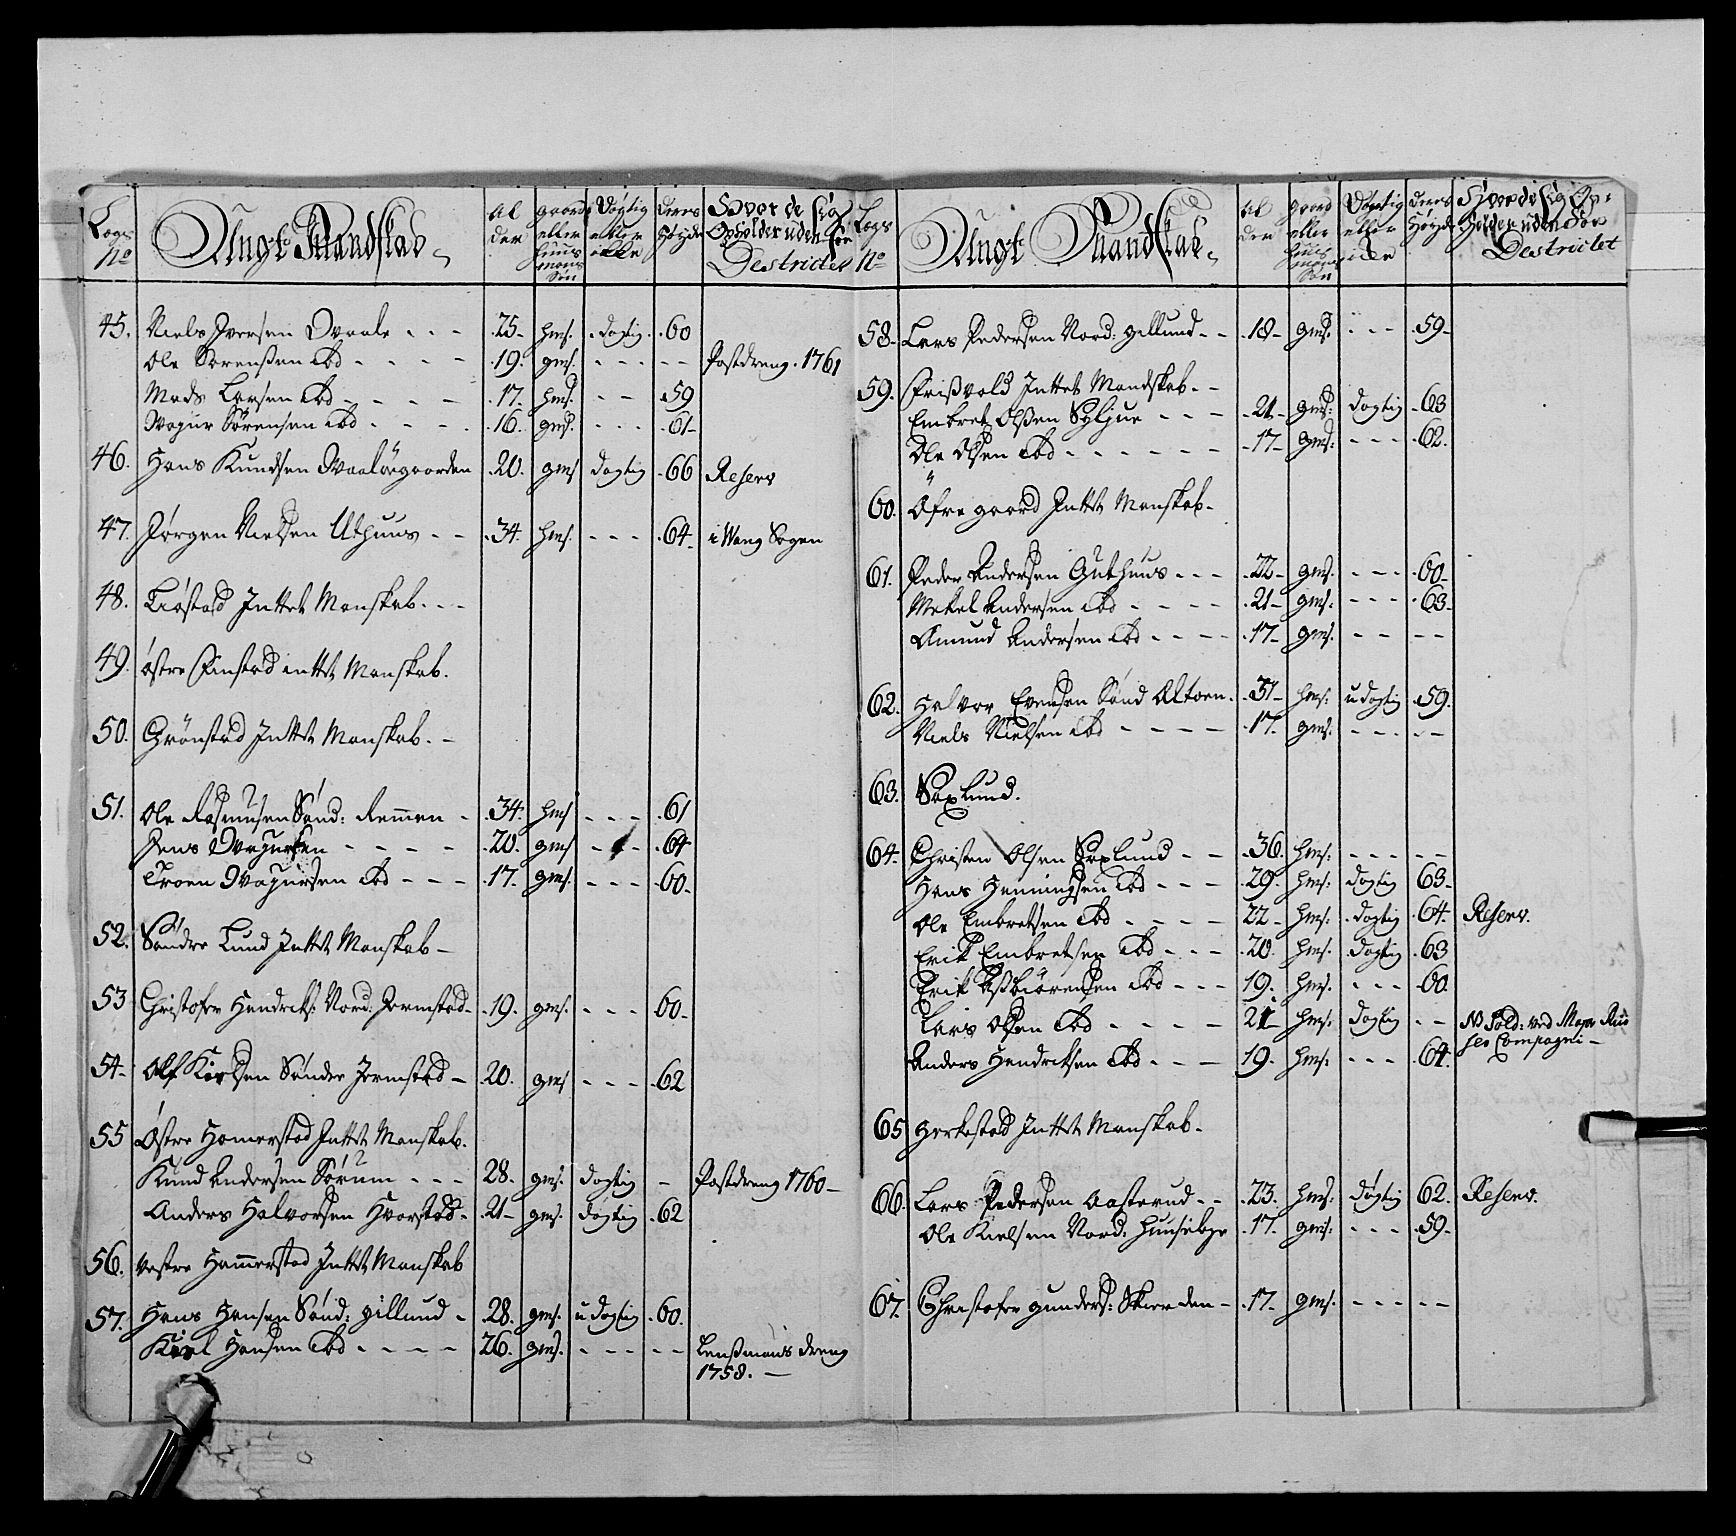 Legs No Ungt Mandskab Al der gaard eller huus mans Søn Døgtig eller icke Deres Høyde Hvor de sig Opholder uden for Destrictet
45. Niels Iversen Ovaale - - - 25 - hms. dogtig. 60
Ole Sørensen ibd - - - - 19. gms. - - - - - Postdreng. 1761
Mads Larsen ibd - - - - 17. hms. - - 59
Sørensen ibd - - - - 16. gms. - - - 61 -
46. Hans Knudsen Ovaaløegaarden 20. gms dogtig 66 Reserv
47. Jørgen Nielsen Uthuus - - 34. hms. - - - 64 - i Wang Sogen
48. Liøstad Inttet Manskab. - -
49. østre Finstad inttet Manskab.
50. Grönstad Inttet Manskab. -
51. Ole Rasmusen Sønd: Remmen - 34. hms - - - 61
Jens - - - - 20. gms - - - 64
Troen ibd - - - 17. gms. - - - 60 -
52. Søndre Lund Inttet Manskab -
53 Christofer Hendriks: Nord: Jermstad - 19. gms. - - - 60 -
54 - Olf Kielsen Sønder Jermstad - 20. gms - - - 62
55 Østre Hamerstad Inttet Manskab.
Knud Andersen Sørum - - - 28. gms. dogtig - Postdreng 1760 -
Anders Halvorsen Hvarstad - 21 - gms. dögtig 62
56. Vestre Hammerstad Inttet Manskab
57. Hans Hansen Sönd: gillund - 28. gms. udogtig 60.
Kiel Hansen ibd - - - - 26. gms. - - - - - Lensmans dreng
1758. -
Legs No Ungt Mandskab Al der gaard eller huus mans Søn Døgtig eller icke Deres Høyde Hvor de sig Op- holder uden for Destrictet
58 - Lars Pedersen Nord: gillund - - 18 - gms. - - - 59 -
59. Frisvold Inttet Mandskab - -
Embret Olsen Syljue - - - 21 - gms: dogtig 63
Ole Olsen ibd - - - - - - 17 - gms: - - - 62.
60. Öfre gaard Inttet Manskab -
61. Peder Andersen Guthuus - - - 22 - gms. - - - 60 -
Mekel Andersen ibd - - - - 21 - gms. - - - 63 -
Amund Andersen ibd - - - - 17 - gms. - - - -
62. Halvor Evensen Sönd Altoen. 31 - hms: udogtig 59.
Niels Nielsen ibd - - - - 17. gms. - - - - -
63. Saxlund.
64. Christen Olsen Saxlund - - 36. hms. - - - - -
Hans Henningsen ibd - - - 29. hms: dogtig 63 -
Ole Embretsen ibd - - - - 22 - hms: dogtig 64. Reserv.
Erik Embretsen ibd - - - 20. hms: dogtig 63
Erik Asbiörensen ibd - - - 19. hms. - - - 60.
Lars Olsen ibd - - - - 21 hms: dogtig - - NB Sold: ved Major
Compagni -
Anders Hendriksen ibd - - - 19. hms: - - - 64.
65 Herkestad Inttet Manskab -
66. Lars Pedersen Aasterud - - 23. hms. dögtig 62. Reserv.
Ole Kielsen Nord: Huuseb&yuml; - 17. gms: - - - 59 -
67. Christofer gunders: Skierden - 17 - gms. - - - - -